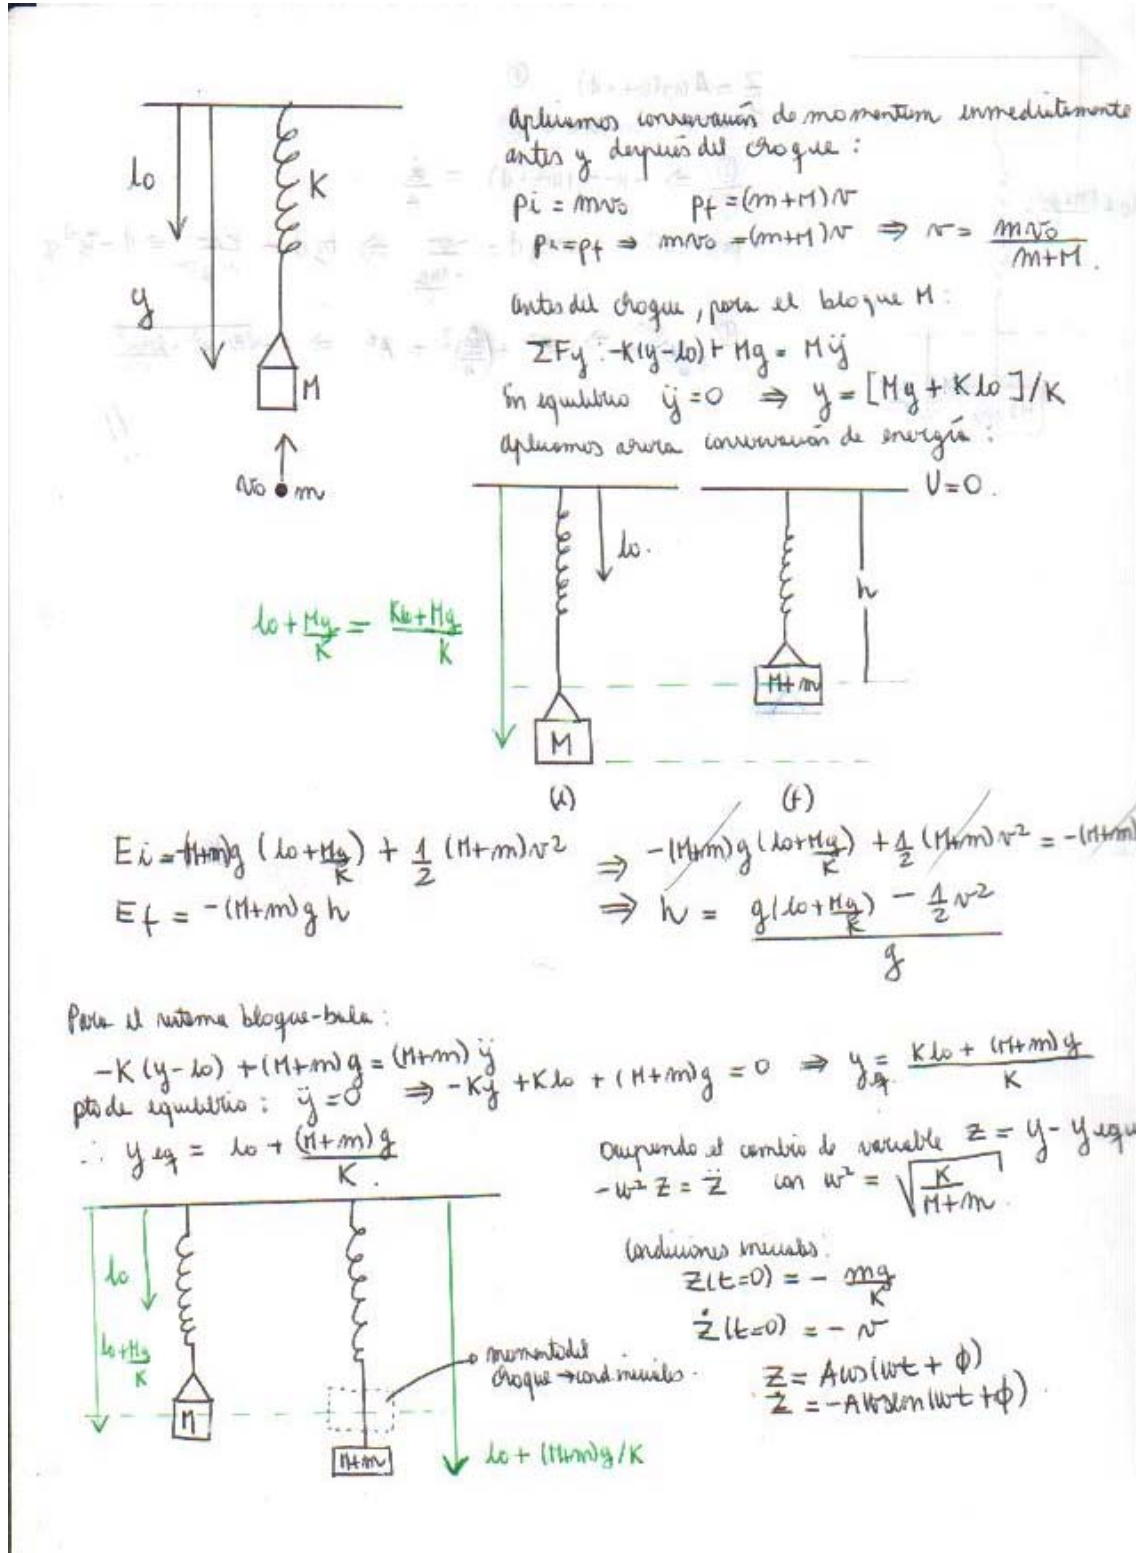 Aplicamos conservación de momentum inmediatamente
antes y después del choque:
pi = mv₀ pf = (m+M)v
pi = pf ⇒ mv₀ = (m+M)v ⇒ v = mv₀/m+M.
lo
K
y
M
v₀ m
Antes del choque, para el bloque M:
ΣFy: -K(y-lo) + Mg = Mÿ
En equilibrio ÿ=0 ⇒ y = [Mg + Klo]/K
Aplicamos ahora conservación de energía:
U=0.
lo.
h
lo + Mg/K = Klo+Mg/K
M+m
M
(i) (f)
Ei = -(M+m)g (lo + Mg/K) + 1/2 (M+m)v² ⇒ -(M+m)g(lo+Mg/K) + 1/2 (M+m)v² = -(M+m)
Ef = -(M+m)gh ⇒ h = g(lo+Mg/K) - 1/2 v² / g
Para el sistema bloque-bala:
-K(y-lo) + (M+m)g = (M+m)ÿ
pto de equilibrio: ÿ=0 ⇒ -Ky + Klo + (M+m)g = 0 ⇒ yeq. = Klo + (M+m)g/K
∴ yeq = lo + (M+m)g/K.
Ocupando el cambio de variable Z = y - yequ
-w² Z = Z̈ con w² = √K/M+m.
Condiciones iniciales:
Z(t=0) = - mg/K
Ż(t=0) = - v
Z = Acos(wt + ϕ)
Ż = -Awsen(wt + ϕ).
lo
lo+Mg/K
M
momento del
choque → cond. iniciales.
M+m
lo + (M+m)g/K